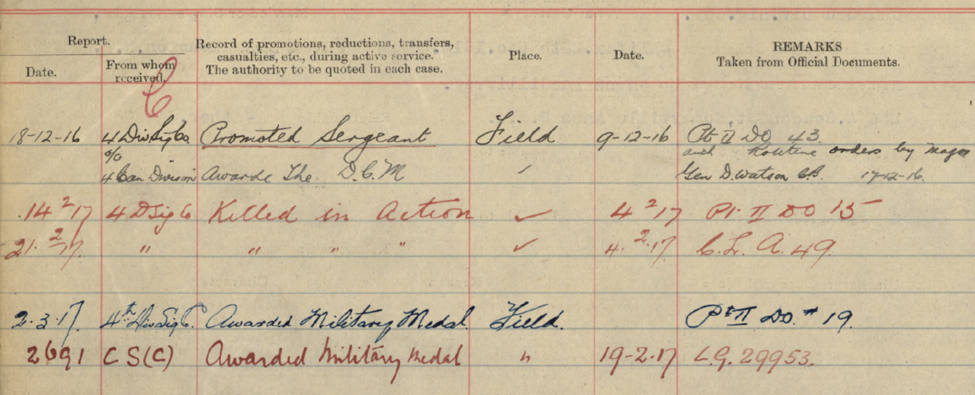 Report.
Date.
From whom received.
Record of promotions, reductions, transfers, casualties, etc., during active service. The authority to be quoted in each case.
Place.
Date.
REMARKS
Taken from Official Documents.
C
18-12-16 4 Div Sig Co Promoted Sergeant Field 9-12-16 Pt II DO 43
o/c auth Routine orders by Major
4 Can Division Awarde The D.C.M ✓ Gen D. Watson C.B. 17-12-16.
14 2 17 4 D Sig C Killed in Action ✓ 4 2 17 Pt. II DO 15
21. 2 17. " " " " ✓ 4. 2. 17 C.L. A. 49.
2.3.17. 4th Div Sig C. Awarded Military Medal Field. Pt II DO. 19.
2691 CS(C) Awarded Military Medal " 19-2-17 L.G. 29953.